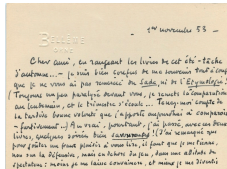 1er novembre 53 -
BELLÈVE
Cher ami, en rangeant les livres de cet été - tâche
d'automne... - je suis bien confus de me souvenir tout à coup
que je ne vous ai pas remercié du Sade, ni de l'Etymologie !
( Toujours un peu paralysé devant vous, je remets la comparution
au lendemain, et le trimestre s'écoule ... Tenez-moi compte de
la tardive bonne volonté que j'apporte aujourd'hui à comparaître
- furtivement - ) Au vrai, pourtant, j'ai passé, avec ces deux
livres, quelques soirées bien savoureuses ( J'ai remarqué que
pour goûter un franc plaisir à vous lire, il faut que je me tienne,
non sur la défensive, mais en dehors du jeu, dans une attitude de
spectateur ; moins je me laisse convaincre, et mieux je me divertis